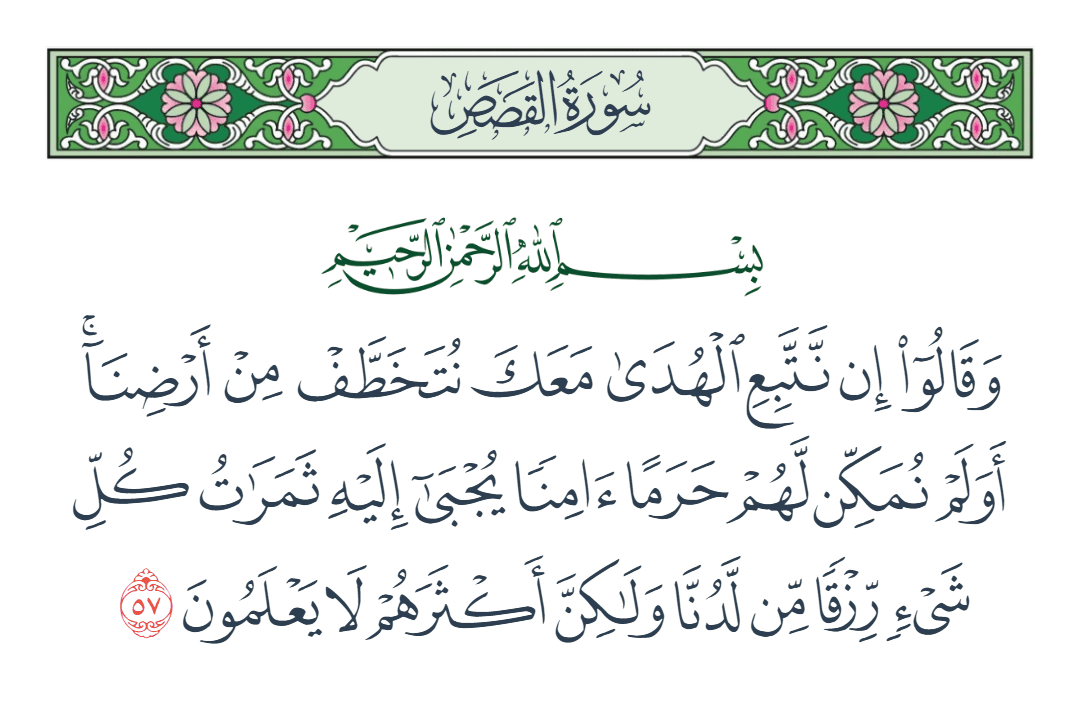 سُورَةُ القَصَصِ
بِسْمِ ٱللَّهِ ٱلرَّحْمَٰنِ ٱلرَّحِيمِ
وَقَالُوٓاْ إِن نَّتَّبِعِ ٱلْهُدَىٰ مَعَكَ نُتَخَطَّفْ مِنْ أَرْضِنَآۚ
أَوَلَمْ نُمَكِّن لَّهُمْ حَرَمًا ءَامِنًا يُجْبَىٰٓ إِلَيْهِ ثَمَرَٰتُ كُلِّ
شَىْءٍ رِّزْقًا مِّن لَّدُنَّا وَلَٰكِنَّ أَكْثَرَهُمْ لَا يَعْلَمُونَ ٥٧